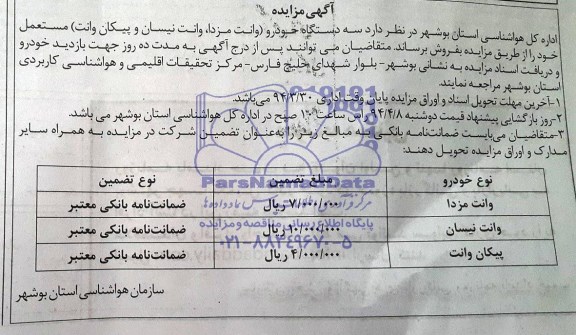 آگهی مزایده
اداره کل هواشناسی استان بوشهر در نظر دارد سه دستگاه خودرو (وانت مزدا، وانت نیسان و پیکان وانت) مستعمل
خود را از طریق مزایده بفروش برساند. متقاضیان می توانند پس از درج آگهی به مدت ده روز جهت بازدید خودرو
و دریافت اسناد مزایده به نشانی بوشهر- بلوار شهدای خلیج فارس- مرکز تحقیقات اقلیمی و هواشناسی کاربردی
استان بوشهر مراجعه نمایند.
۱-آخرین مهلت تحویل اسناد و اوراق مزایده پایان وقت اداری ۹۴/۳/۳۰ می‌باشد.
۲-روز بازگشایی پیشنهاد قیمت دوشنبه ۹۴/۴/۸ راس ساعت ۱۰ صبح در اداره کل هواشناسی استان بوشهر می باشد.
۳-متقاضیان می‌بایست ضمانت‌نامه بانکی به مبالغ زیر را به‌عنوان تضمین شرکت در مزایده به همراه سایر
مدارک و اوراق مزایده تحویل دهند:
نوع خودرو مبلغ تضمین نوع تضمین
وانت مزدا ۷/۰۰۰/۰۰۰ ریال ضمانت‌نامه بانکی معتبر
وانت نیسان ۱۰/۰۰۰/۰۰۰ ریال ضمانت‌نامه بانکی معتبر
پیکان وانت ۴/۰۰۰/۰۰۰ ریال ضمانت‌نامه بانکی معتبر
سازمان هواشناسی استان بوشهر
ParsNamadData
پایگاه اطلاع رسانی مناقصه و مزایده
۰۲۱-۸۸۳۴۹۶۷۰-۵